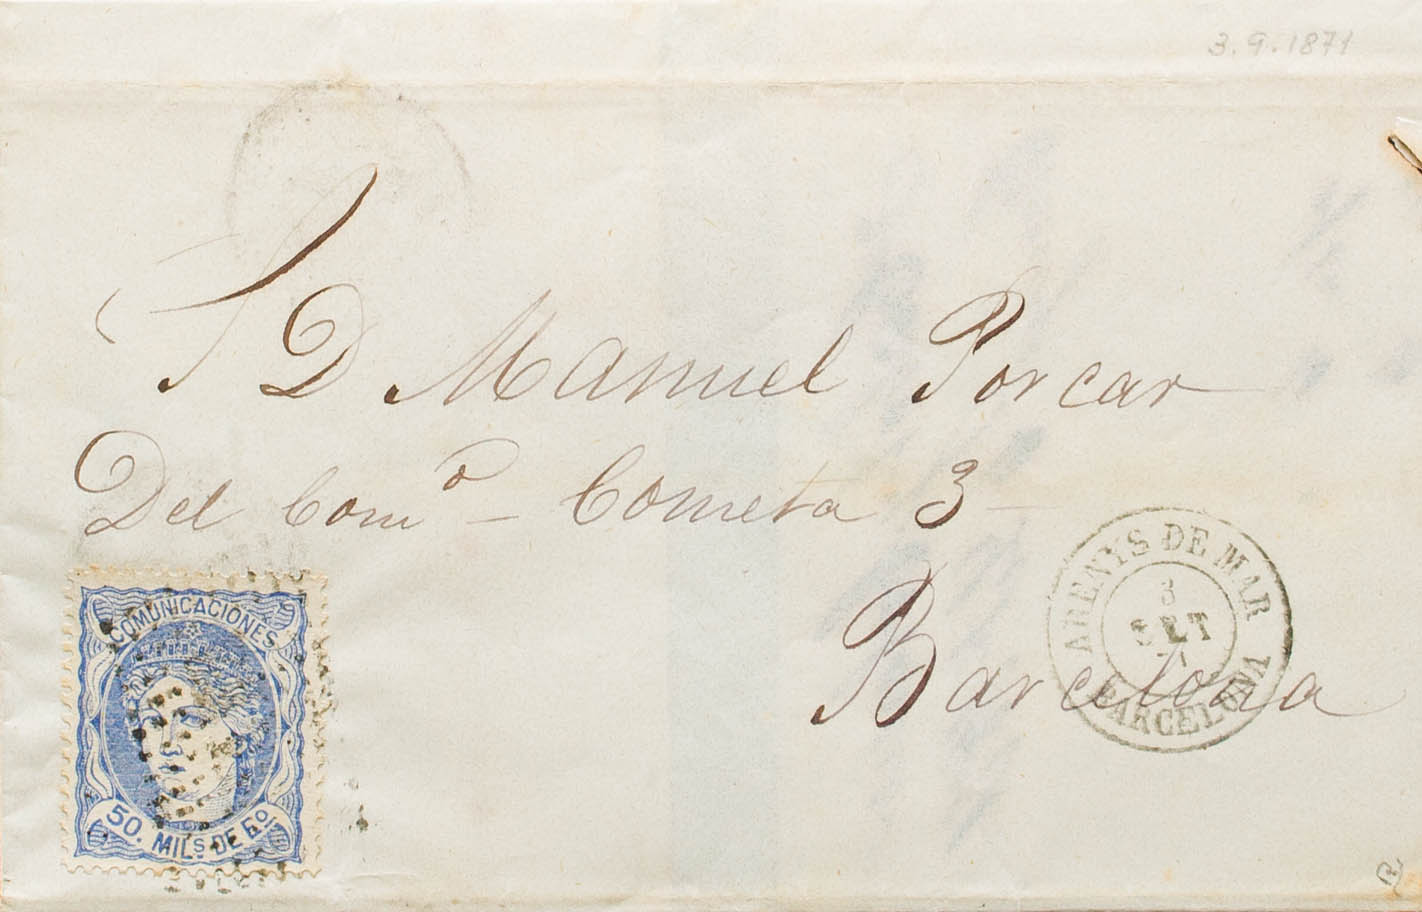 3.9.1871
S D Manuel Porcar
Del Comº - Cometa 3 -
Barcelona
ARENYS DE MAR
3
SET
71
BARCELONA
COMUNICACIONES
50. MILS. DE Eº